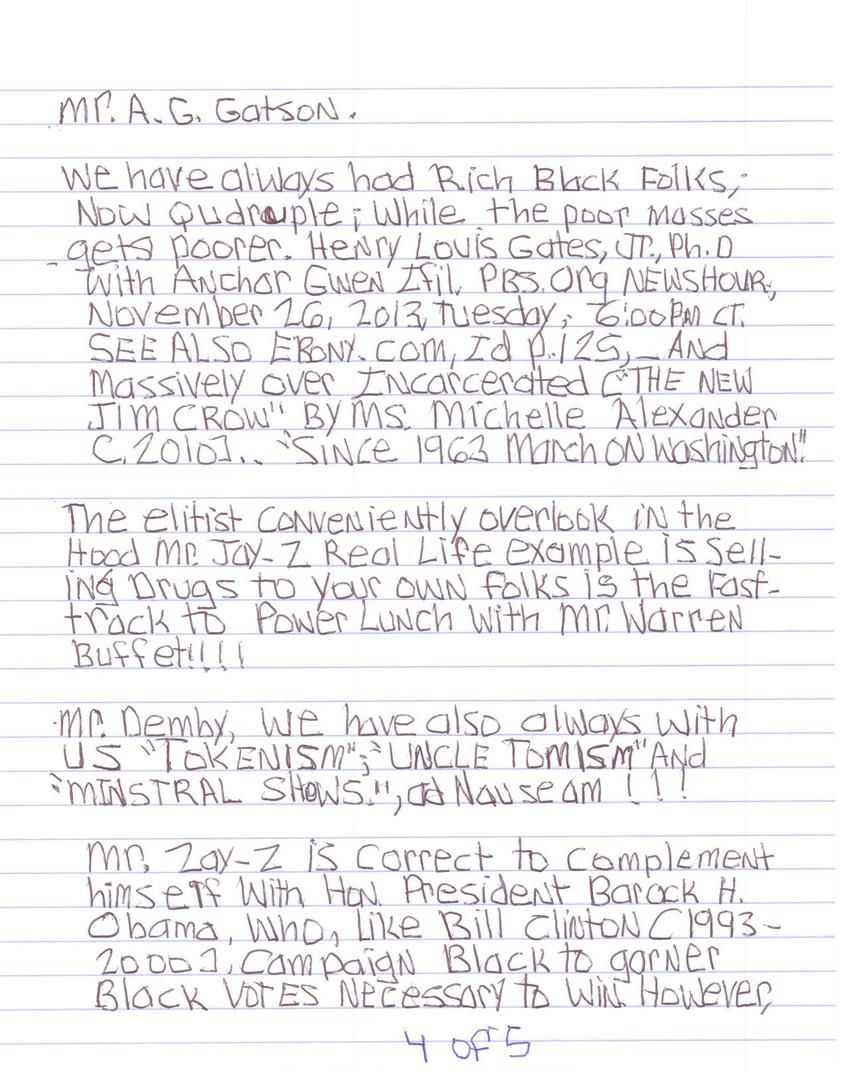 Mr. A. G. Gatson.
We have always had Rich Black Folks,
Now Qudruple; While the poor masses
gets poorer. Henry Louis Gates, Jr., Ph.D
With Anchor Gwen Ifil, PBS.Org NEWSHOUR,
November 26, 2013, Tuesday, 6:00 PM CT.
SEE ALSO EBONY.com, Id p.125, _ And
Massively over Incarcerated ("THE NEW
JIM CROW" By MS. Michelle Alexander
C.2010].. "SINCE 1963 March ON Washington"!
The elitist CONVENIENTLY overlook iN the
Hood Mr. Jay-Z Real Life example is Sell-
iNg Drugs to your own folks is the Fast-
track to Power Lunch With Mr. Warren
Buffet!!!!
Mr. Demby, We have also always with
US "TOKENISM"; "UNCLE TOMISM" And
"MINSTRAL SHOWS.", ad Nauseam !!!
Mr. Zay-Z is Correct to Complement
himself With HoN. President Barack H.
Obama, Who, Like Bill Clinton (1993-
2000], Campaign Black to garner
Black VOTES Necessary to Win. However,
4 of 5